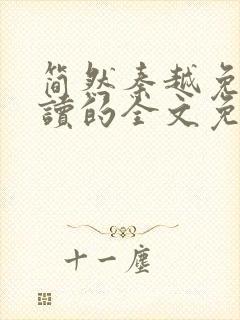 简然秦越免
讀的全文免
十一塵